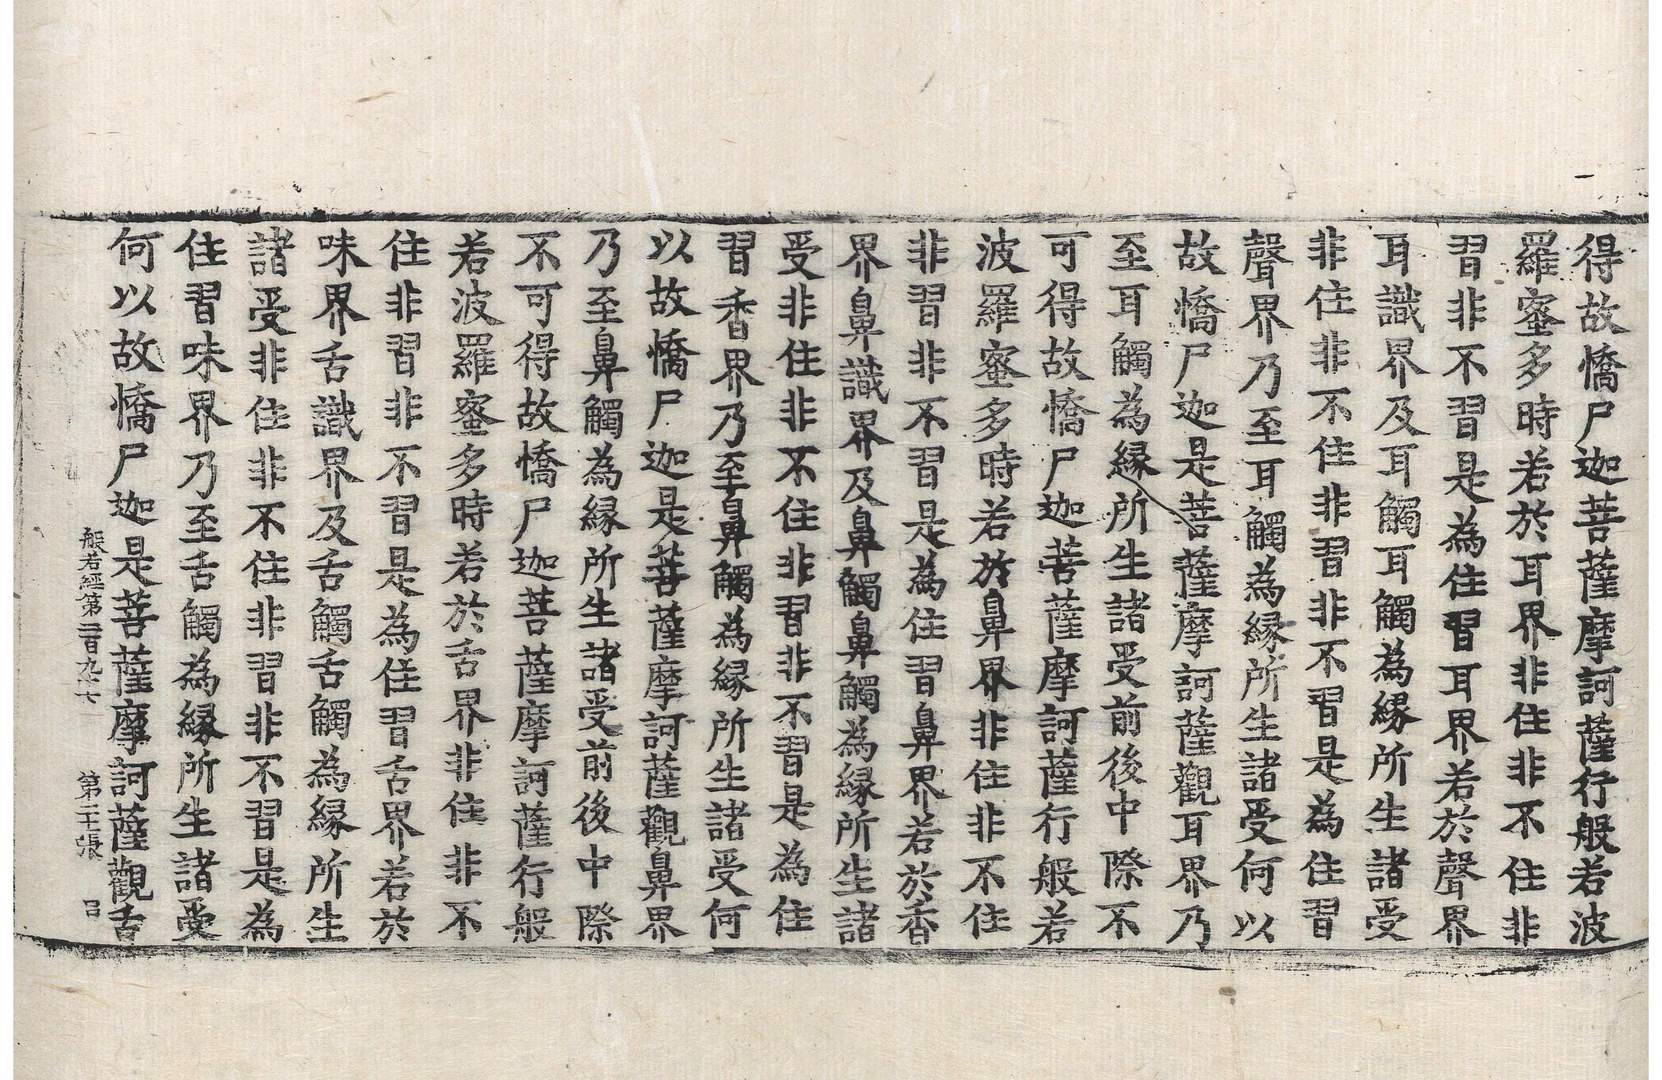 得故憍尸迦菩薩摩訶薩行般若波
羅蜜多時若於耳界非住非不住非
習非不習是為住習耳界若於聲界
耳識界及耳觸耳觸為緣所生諸受
非住非不住非習非不習是為住習
聲界乃至耳觸為緣所生諸受何以
故憍尸迦是菩薩摩訶薩觀耳界乃
至耳觸為緣所生諸受前後中際不
可得故憍尸迦菩薩摩訶薩行般若
波羅蜜多時若於鼻界非住非不住
非習非不習是為住習鼻界若於香
界鼻識界及鼻觸鼻觸為緣所生諸
受非住非不住非習非不習是為住
習香界乃至鼻觸為緣所生諸受何
以故憍尸迦是菩薩摩訶薩觀鼻界
乃至鼻觸為緣所生諸受前後中際
不可得故憍尸迦菩薩摩訶薩行般
若波羅蜜多時若於舌界非住非不
住非習非不習是為住習舌界若於
味界舌識界及舌觸舌觸為緣所生
諸受非住非不住非習非不習是為
住習味界乃至舌觸為緣所生諸受
何以故憍尸迦是菩薩摩訶薩觀舌
般若經第二百九十七 第二十張 呂